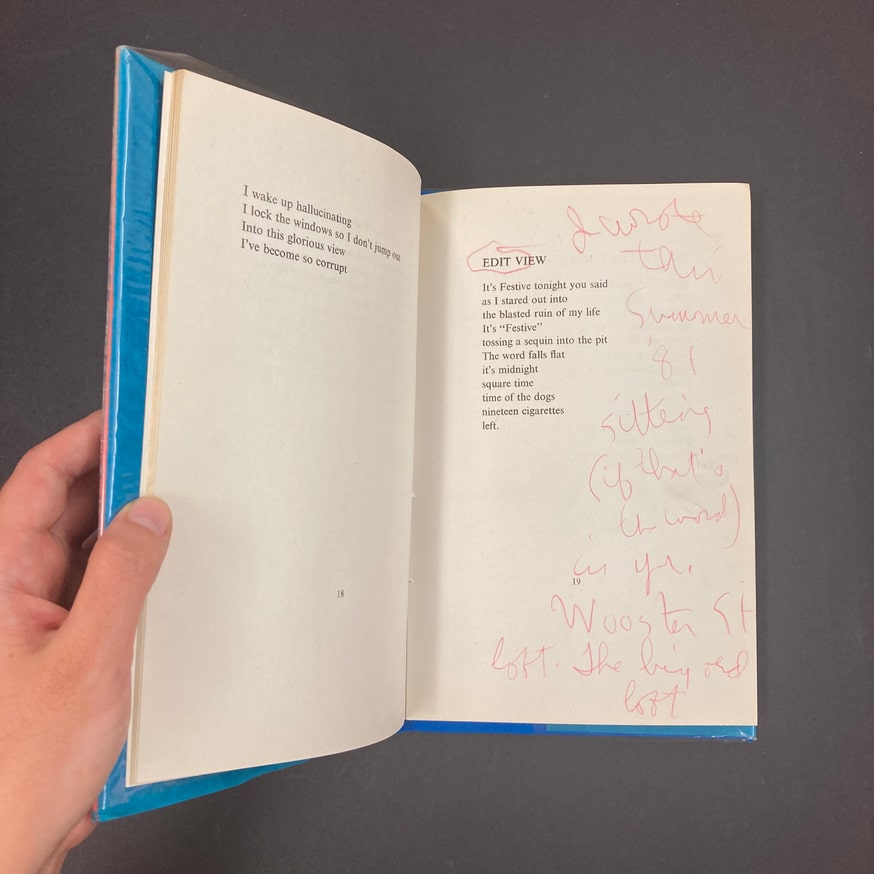 I wake up hallucinating
I lock the windows so I don't jump out
Into this glorious view
I've become so corrupt
18
EDIT VIEW
It's Festive tonight you said
as I stared out into
the blasted ruin of my life
It's "Festive"
tossing a sequin into the pit
The word falls flat
it's midnight
square time
time of the dogs
nineteen cigarettes
left.
19
I wrote
this
Summer
'81
sitting
(if that's
the word)
in yr.
Wooster St
loft. The big red
loft